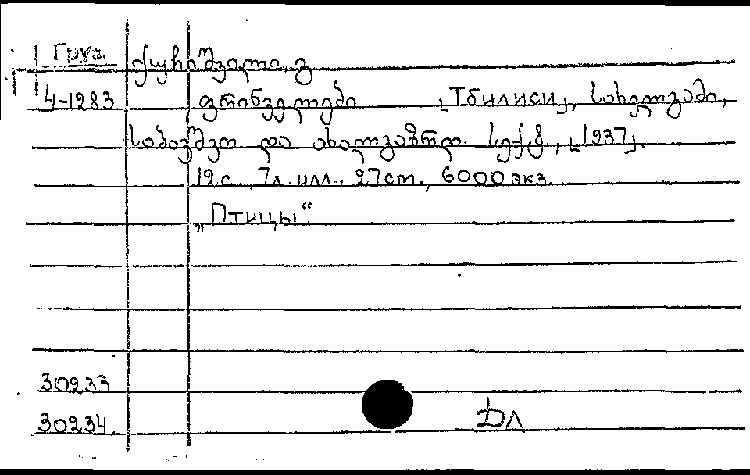 Груз. ქურიშვილი, გ
4-1283 ფრინველები [Тбилиси], სახელგამი,
საბავშვო და ახალგაზრდ. სექტ., [1937].
12 с., 7 л. илл., 27 см., 6000 экз.
„Птицы“
30233
30234. Дл